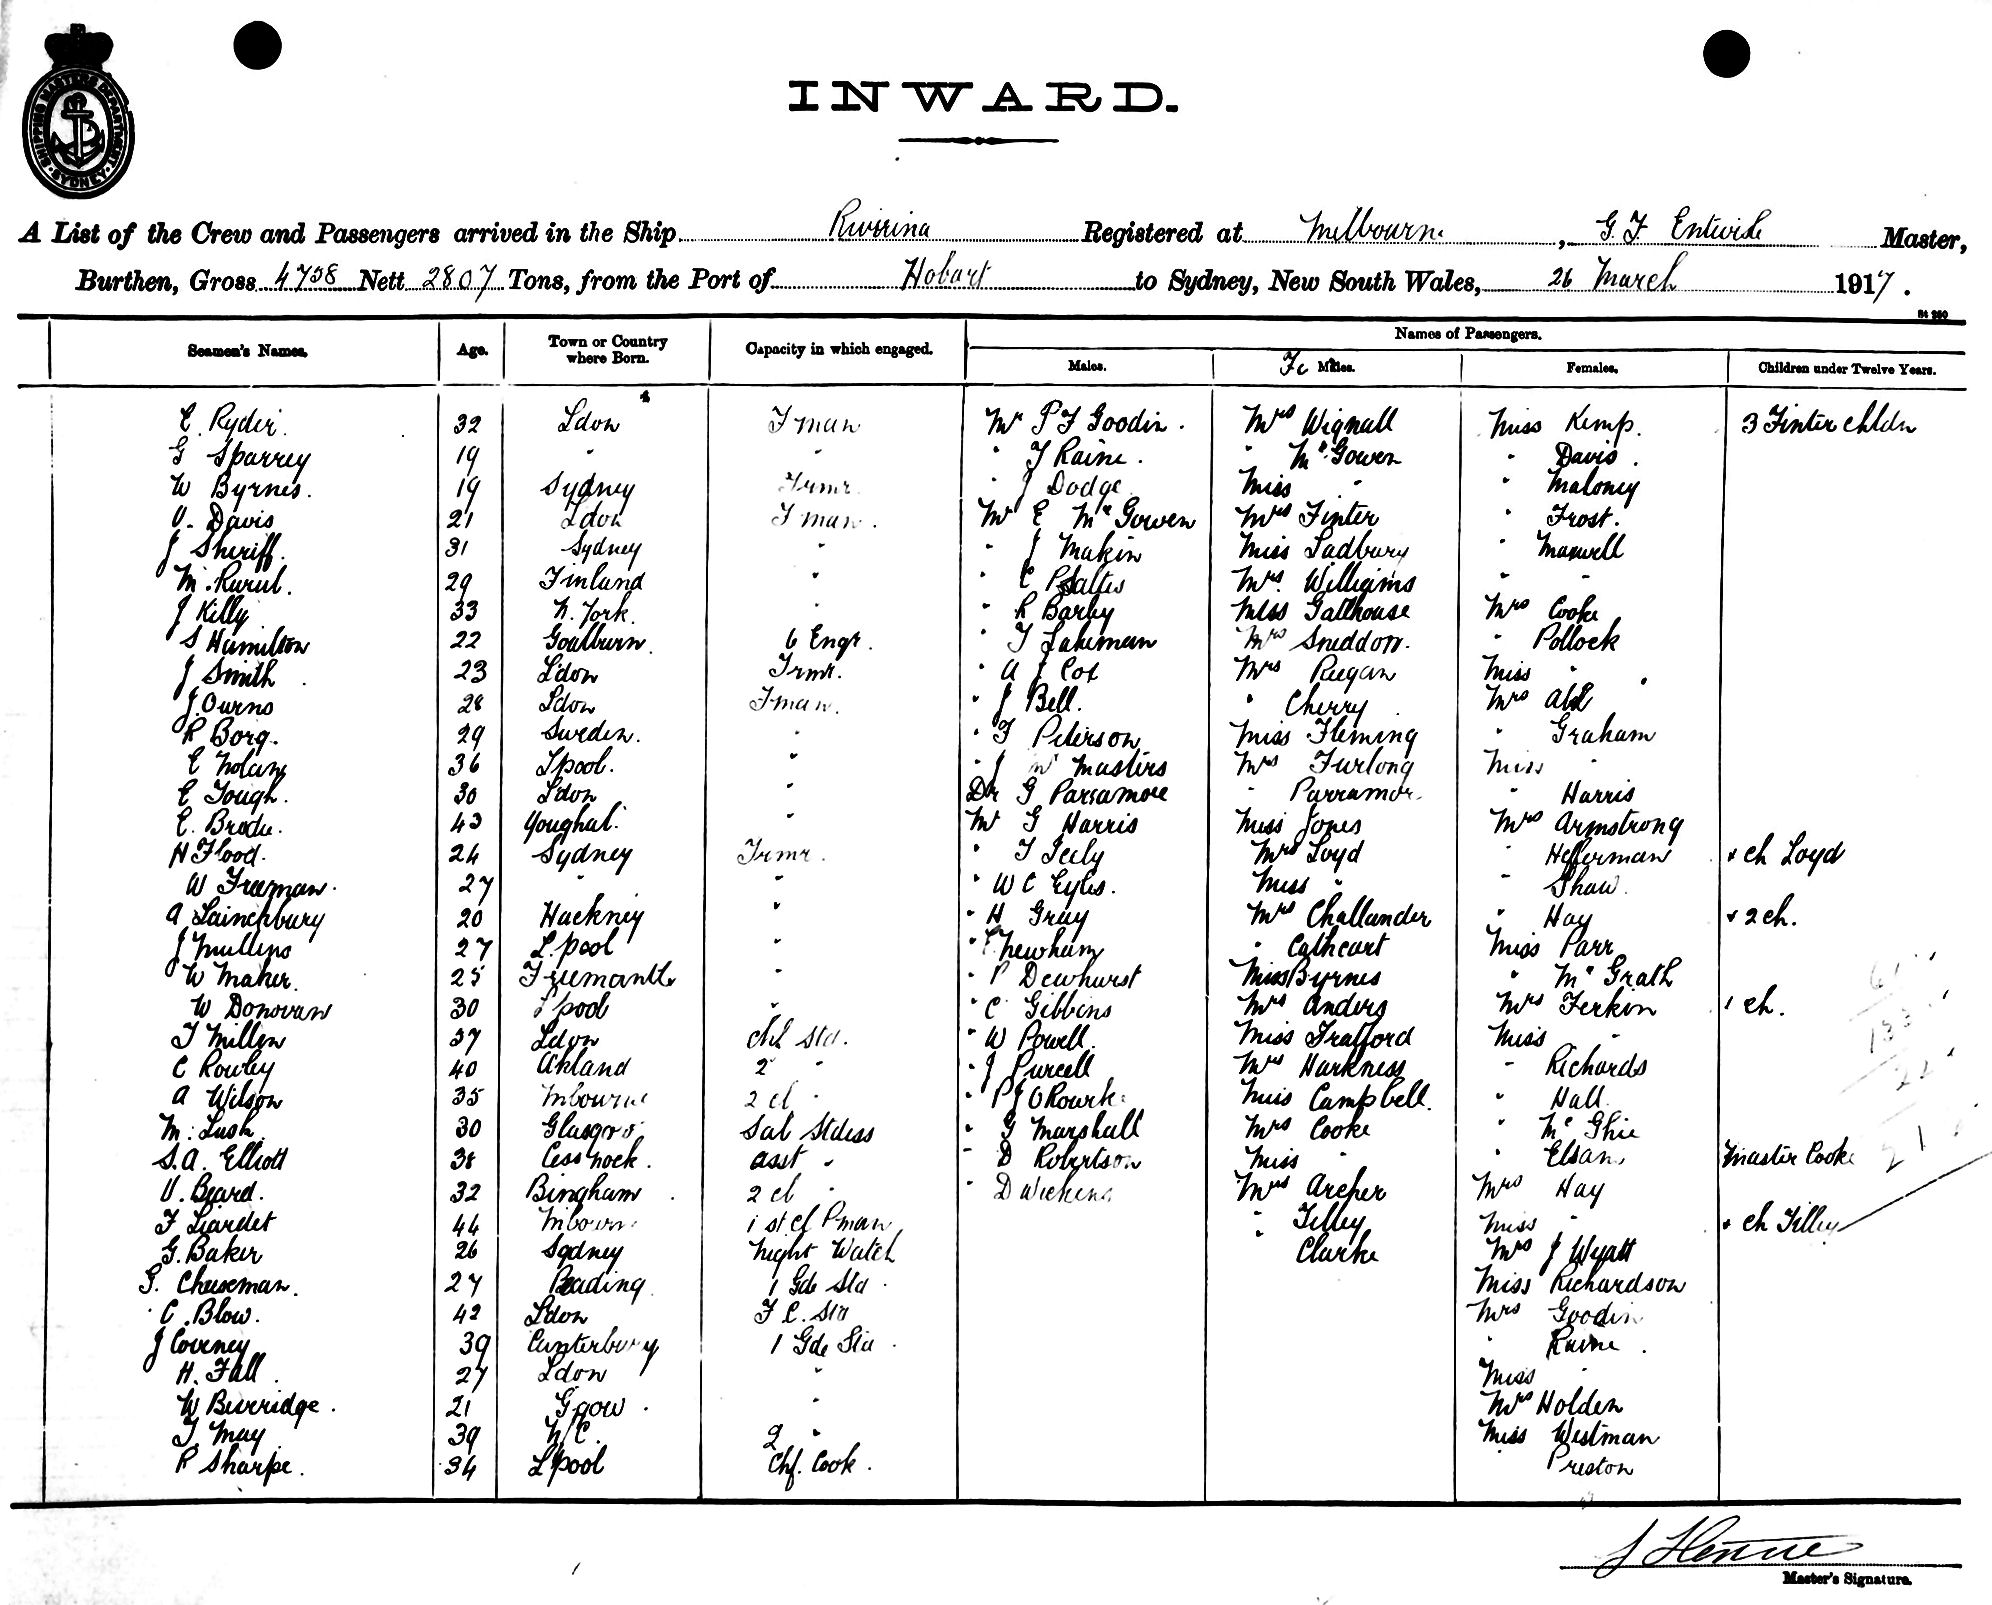 SHIPPING MASTERS DEPARTMENT · SYDNEY ·
INWARD.
A List of the Crew and Passengers arrived in the Ship Riverina Registered at Melbourne, G. F. Entwisle Master,
Burthen, Gross 4758 Nett 2807 Tons, from the Port of Hobart to Sydney, New South Wales, 26 March 1917.
Seamen's Names. Age. Town or Country where Born. Capacity in which engaged. Names of Passengers.
Males. Fe Males. Females. Children under Twelve Years.
E. Ryder. 32 Ldon Fman Mr P F Goodin. Mrs Wignall Miss Kemp. 3 Finter Chldn
G Sparrey 19 " " " T Raine. " McGowen " Davis.
W Byrnes. 19 Sydney Trmr " J Dodge Miss " " Maloney
V. Davis 21 Ldon Fman. Mr E McGowen Mrs Finter " Frost.
J Sheriff. 31 Sydney " " J Makin Miss Sadbury " Maxwell
M. Rurul. 29 Finland " " C Psaltis Mrs. Williams " "
J Kelly 33 N. York. " " R Barby Miss Gatehouse Mrs Cooke
S Hamilton 22 Goalburn. 6 Engr. " T Lakeman Mrs Sneddon. " Pollock
J Smith. 23 Ldon Trmr. " A J Cox Mrs Regan Miss "
J. Owens 28 Ldon Fman. " J Bell. " Cherry Mrs Abel
R Borg. 29 Sweden. " " F Peterson Miss Fleming " Graham
E Nolan 36 Lpool. " " J Masters Mrs Furlong Miss "
E Tough. 30 Ldon " Dr G Parramore " Parramor. " Harris
E. Brodie. 43 Youghal. " Mr G Harris Miss Jones Mrs Armstrong
H Flood. 24 Sydney Trmr. " T Seely Mrs Loyd " Hefferman + ch Loyd
W Freeman. 27 " " " W C Eyles. Miss " " Shaw.
A Lainchbury 20 Hackney " " H Gray Mrs Challander " Hay + 2 ch.
J Mullins 27 L.pool " " Newham " Cathcart Miss Parr
W Maher. 25 Freemantle " " P Dewhurst Miss Byrnes " McGrath
W Donovan 30 Lpool " " C Gibbins Mrs Anders Mrs Ferkin 1 ch.
T Millen 37 Ldon Chf Std. " W Powell. Miss Trafford Miss "
C Rowley 40 Akland 2 " " J Purcell Mrs Harkness " Richards
A Wilson 35 Mbourne 2 cl " " P J ORourke Miss Campbell. " Hall
M. Lush. 30 Glasgow Sal Stdess " G Marshall Mrs Cooke " McGhie
S. A. Elliott 38 Cessnock. Asst " " D Robertson Miss " " Elsam Master Cooke
V. Beard. 32 Bingham 2 cl " " D Wickens Mrs Archer Mrs Hay
F Liardet 44 Mbourne 1st cl Pman " Tilley Miss " + ch Tilley
G. Baker 26 Sydney Night Watch " Clarke Mrs J Wyatt
G. Cheeseman. 27 Reading 1 Gde Std. Miss Richardson
C. Blow. 42 Ldon F C. Std Mrs Goodin
J Coveney 39 Canterbury 1 Gde Std. " Raine.
H. Fall. 27 Ldon " Miss "
W Beveridge. 21 Ggow. " Mrs Holden
T May 39 N/C. 2 " Miss Westman
R Sharpe. 34 Lpool Chf. Cook. Preston
Master's Signature.